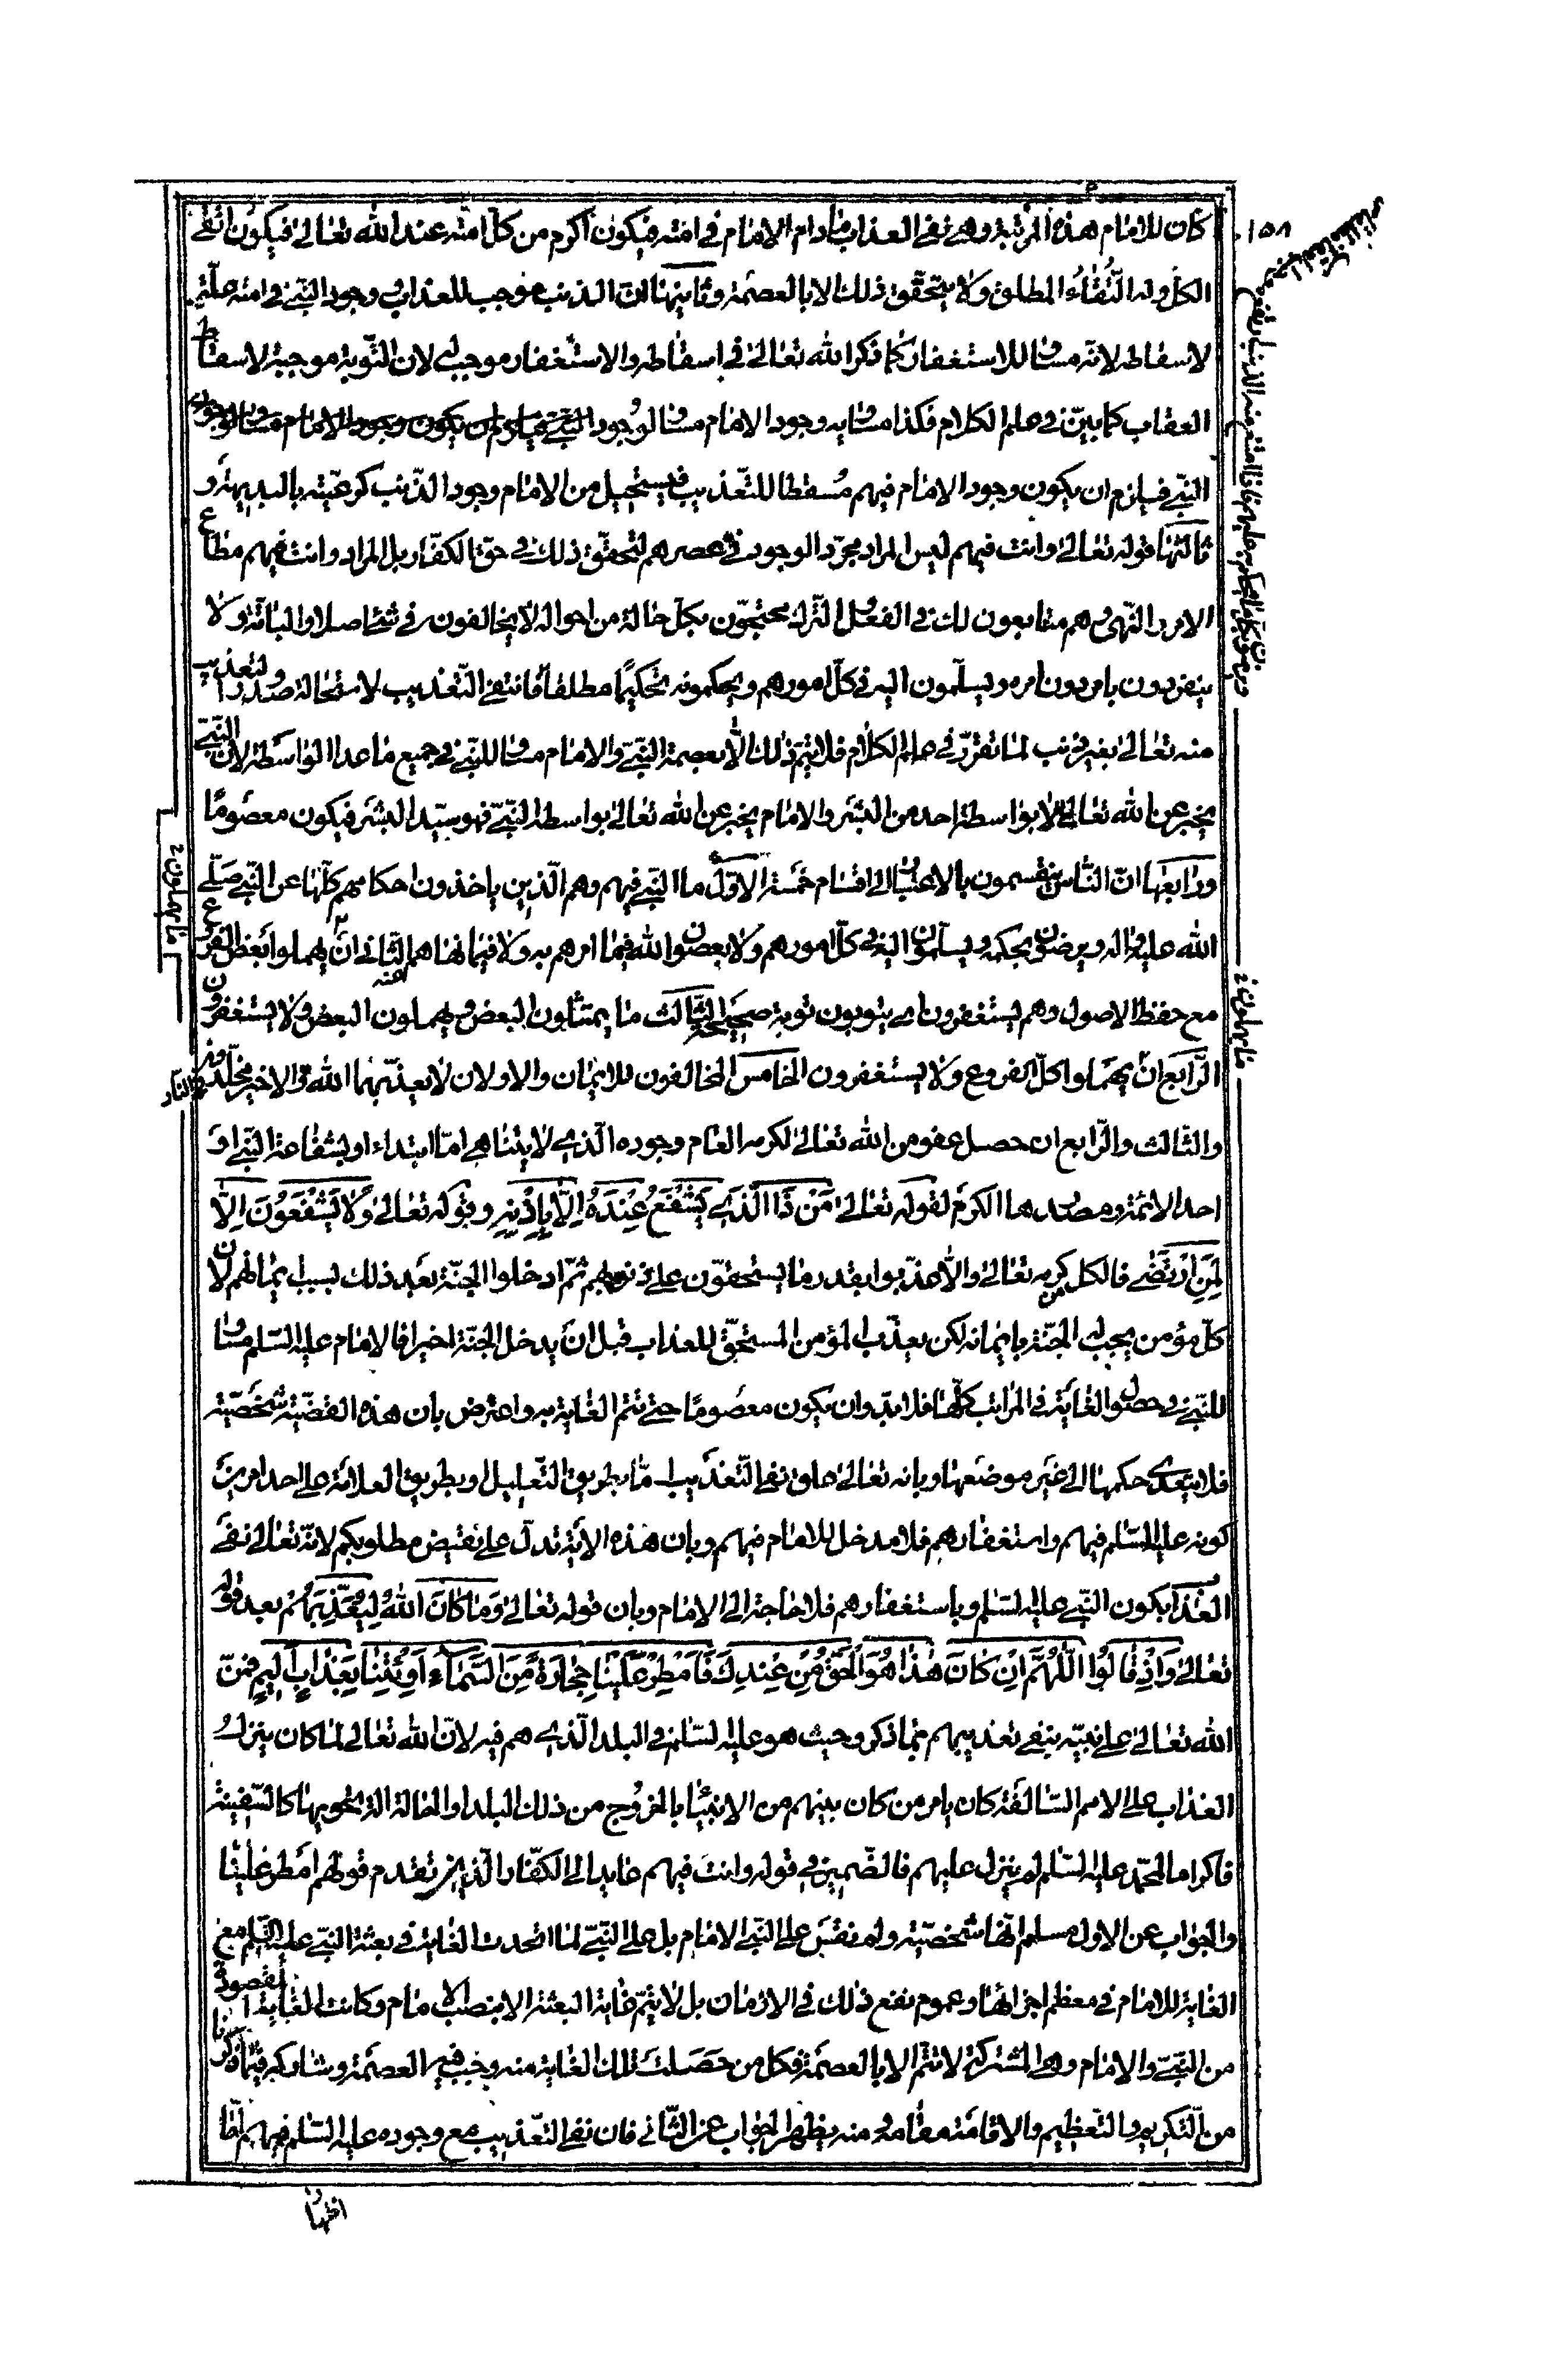 ١٥٨
كان للامام هذه المرتبة وهي نفي العذاب مادام الامام في امته فيكون اكرم من كل امته عند الله تعالى فيكون اتقى
الكل وله التقاء المطلق ولا يتحقق ذلك الا بالعصمة وثانيها ان الذنب موجب للعذاب ووجود النبي في امته علة
لاسقاطه لانه مساو للاستغفار كما ذكر الله تعالى في اسقاطه والاستغفار موجب له لان التوبة موجبة لاسقاط
العقاب كما بين في علم الكلام فكذا مساويه ووجود الامام مساو لوجود النبي
النبي فيلزم ان يكون وجود الامام فيهم مسقطا للتعذيب فيستحيل من الامام وجود الذنب كرعيته بالبديهة و
ثالثها قوله تعالى وانت فيهم ليس المراد مجرد الوجود في عصرهم لتحقق ذلك في حق الكفار بل المراد وانت فيهم مطاع
الامر والنهي وهم متابعون لك في الفعل والترك محتجون بكل حالة من احواله لا يخالفون في شئ اصلا والبتة ولا
ينفردون بامر دون امره ويسلمون اليه في كل امورهم ويحكمونه تحكيما مطلقا فانتفى التعذيب لاستحالة صدور التعذيب
منه تعالى بغير ذنب لما تقرر في علم الكلام فلا يتم ذلك الا بعصمة النبي والامام مساو للنبي في جميع ما عدا الواسطة لان النبي
يخبر عن الله تعالى لا بواسطة احد من البشر والامام يخبر عن الله تعالى بواسطة النبي فهو سيد البشر فيكون معصوما
ورابعها ان الناس ينقسمون بالاعتبار الى اقسام خمسة الاول ما النبي فيهم وهم الذين ياخذون احكامهم كلها عن النبي صلى
الله عليه واله ويرضون بحكمه ويسلمون اليه في كل امورهم ولا يعصون الله فيما امرهم به ولا فيما نهاهم عنه الثاني ان يهملوا بعض الفروع
مع حفظ الاصول وهم يستغفرون اي يتوبون توبة صحيحة الثالث ما يمتثلون البعض ويهملون البعض ولا يستغفرون
الرابع ان يهملوا كل الفروع ولا يستغفرون الخامس المخالفون للايمان والاولان لا يعذبهما الله والاخير مخلدون في النار
والثالث والرابع ان حصل عفو من الله تعالى لكرمه العام وجوده الذي لا يتناهى اما ابتداء او بشفاعة النبي او
احد الائمة ومصدرها الكرم لقوله تعالى مَنْ ذَا الَّذِي يَشْفَعُ عِنْدَهُ إِلَّا بِإِذْنِهِ وقوله تعالى وَلَا يَشْفَعُونَ إِلَّا
لِمَنِ ارْتَضَى فالكل من كرمه تعالى والا عذبوا بقدر ما يستحقون على ذنوبهم ثم ادخلوا الجنة بعد ذلك بسبب ايمانهم لان
كل مؤمن يجب له الجنة بايمانه لكن يعذب المؤمن المستحق للعذاب قبل ان يدخل الجنة اخيرا فالامام عليه السلم مساو
للنبي في حصول الغاية في المراتب كلها فلا بد وان يكون معصوما حتى تتم الغاية به واعترض بان هذه القضية شخصية
فلا يتعدى حكمها الى غير موضعها وبانه تعالى علق نفي التعذيب اما بطريق التعليل او بطريق العلامة على احد امرين
كونه عليه السلم فيهم واستغفارهم فلا مدخل للامام فيهم وبان هذه الاية تدل على نقيض مطلوبكم لانه تعالى نفى
العذاب بكون النبي عليه السلم وباستغفارهم فلا حاجة الى الامام وبان قوله تعالى وَمَا كَانَ اللهُ لِيُعَذِّبَهُمْ بعد قوله
تعالى وَإِذْ قَالُوا اللَّهُمَّ إِنْ كَانَ هَذَا هُوَ الْحَقَّ مِنْ عِنْدِكَ فَأَمْطِرْ عَلَيْنَا حِجَارَةً مِنَ السَّمَاءِ أَوِ ائْتِنَا بِعَذَابٍ أَلِيمٍ فمن
الله تعالى على نبيه بنفي تعذيبهم بما ذكر وحيث هو عليه السلم في البلد الذي هم فيه لان الله تعالى لما كان ينزل
العذاب على الامم السالفة كان يامر من كان بينهم من الانبياء بالخروج من ذلك البلد او الحالة التي يحويها كالسفينة
فاكراما لمحمد عليه السلم لم ينزل عليهم فالضمير في قوله وانت فيهم عايد الى الكفار الذين تقدم قولهم امطر علينا
والجواب عن الاول مسلم انها شخصية ولم نقس على النبي الامام بل على النبي لما اتحدت الغاية في بعثة النبي عليه السلم مع
الغاية للامام في معظم اجزائها وعموم نفع ذلك في الازمان بل لا يتم غاية البعثة الا بنصب الامام وكانت الغاية المقصودة
من النبي والامام وهي المشتركة لا تتم الا بالعصمة فكل من حصلت تلك الغاية منه وجب فيه العصمة وشاركه فيما ذكرنا
من التكريم والتعظيم والاقامة مقامه ومنه يظهر الجواب عن الثاني فان نفي التعذيب مع وجوده عليه السلم فيهم اما
اظهارا